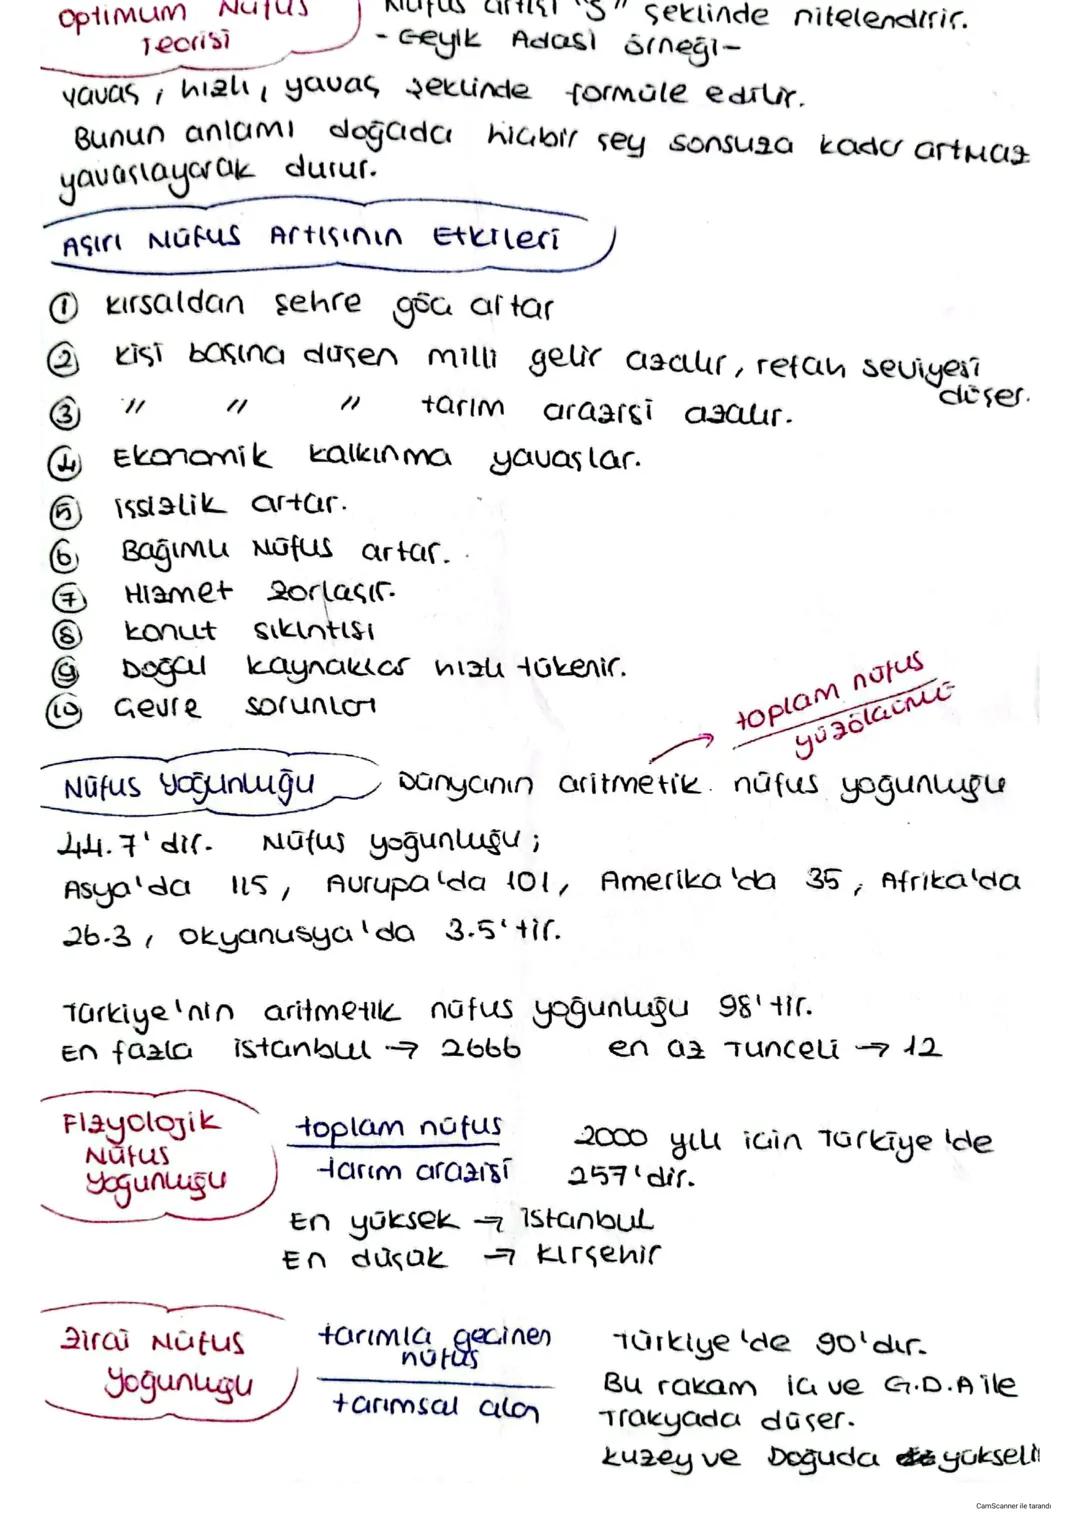 Optimum Nüfus Teorisi
Nüfus artışı "S" şeklinde nitelendirir.
- Geyik Adası örneği-
yavaş, hızlı, yavaş şeklinde formüle edilir.
Bunun anlamı doğada hiçbir şey sonsuza kadar artmaz
yavaşlayarak durur.
Aşırı Nüfus Artışının Etkileri
① kırsaldan şehre göç artar
② kişi başına düşen milli gelir azalır, refah seviyesi düşer.
③ " " " tarım arazisi azalır.
④ Ekonomik kalkınma yavaşlar.
⑤ işsizlik artar.
⑥ Bağımlı Nüfus artar.
⑦ Hizmet zorlaşır.
⑧ konut sıkıntısı
⑨ Doğal kaynaklar hızlı tükenir.
⑩ Çevre sorunları
toplam nüfus
yüzölçümü
Nüfus Yoğunluğu → Dünyanın aritmetik nüfus yoğunluğu
44.7'dir. Nüfus yoğunluğu;
Asya'da 115, Avrupa'da 101, Amerika'da 35, Afrika'da
26.3, okyanusya'da 3.5'tir.
Türkiye'nin aritmetik nüfus yoğunluğu 98'tir.
En fazla istanbul → 2666 en az Tunceli → 12
Fizyolojik Nüfus Yoğunluğu
toplam nüfus
tarım arazisi
2000 yılı için Türkiye'de
257'dir.
En yüksek → istanbul
En düşük → Kırşehir
Zirai Nüfus Yoğunluğu
tarımla geçinen nüfus
tarımsal alan
Türkiye'de 90'dır.
Bu rakam iç ve G.D.A ile
Trakyada düşer.
kuzey ve Doğuda yükseli
CamScanner ile tarandı